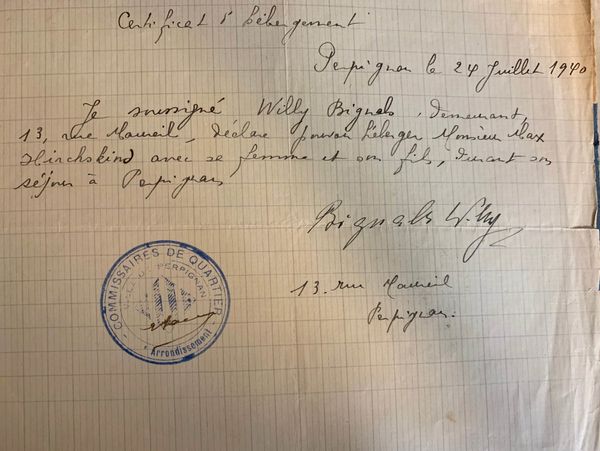 Certificat d'hébergement
Perpignan le 24 Juillet 1940
Je soussigné Willy Bignals, demeurant,
13, rue Maureil, déclare pouvoir héberger Monsieur Max
Hirchskind avec se femme et son fils, durant son
séjour à Perpignan
Bignals Willy
13. rue Maureil
Perpignan.
COMMISSAIRES DE QUARTIER
VILLE DE PERPIGNAN
Arrondissement